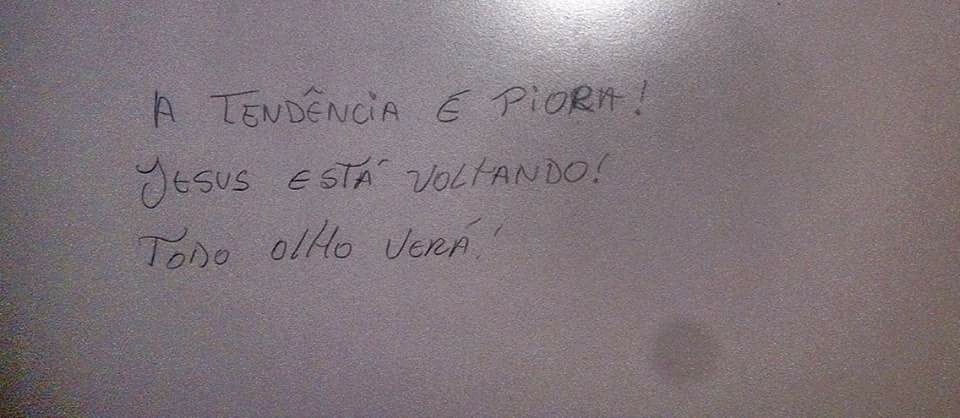 A TENDÊNCIA E PIORA!
JESUS ESTÁ VOLTANDO!
TODO OLHO VERÁ!